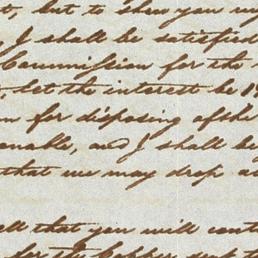 , but to show you my
I shall be satisfied
Commission for the
, let the interest be
for disposing of the
enable, and I shall be
that we may drop
ell that you will cont
for the Copper sent t